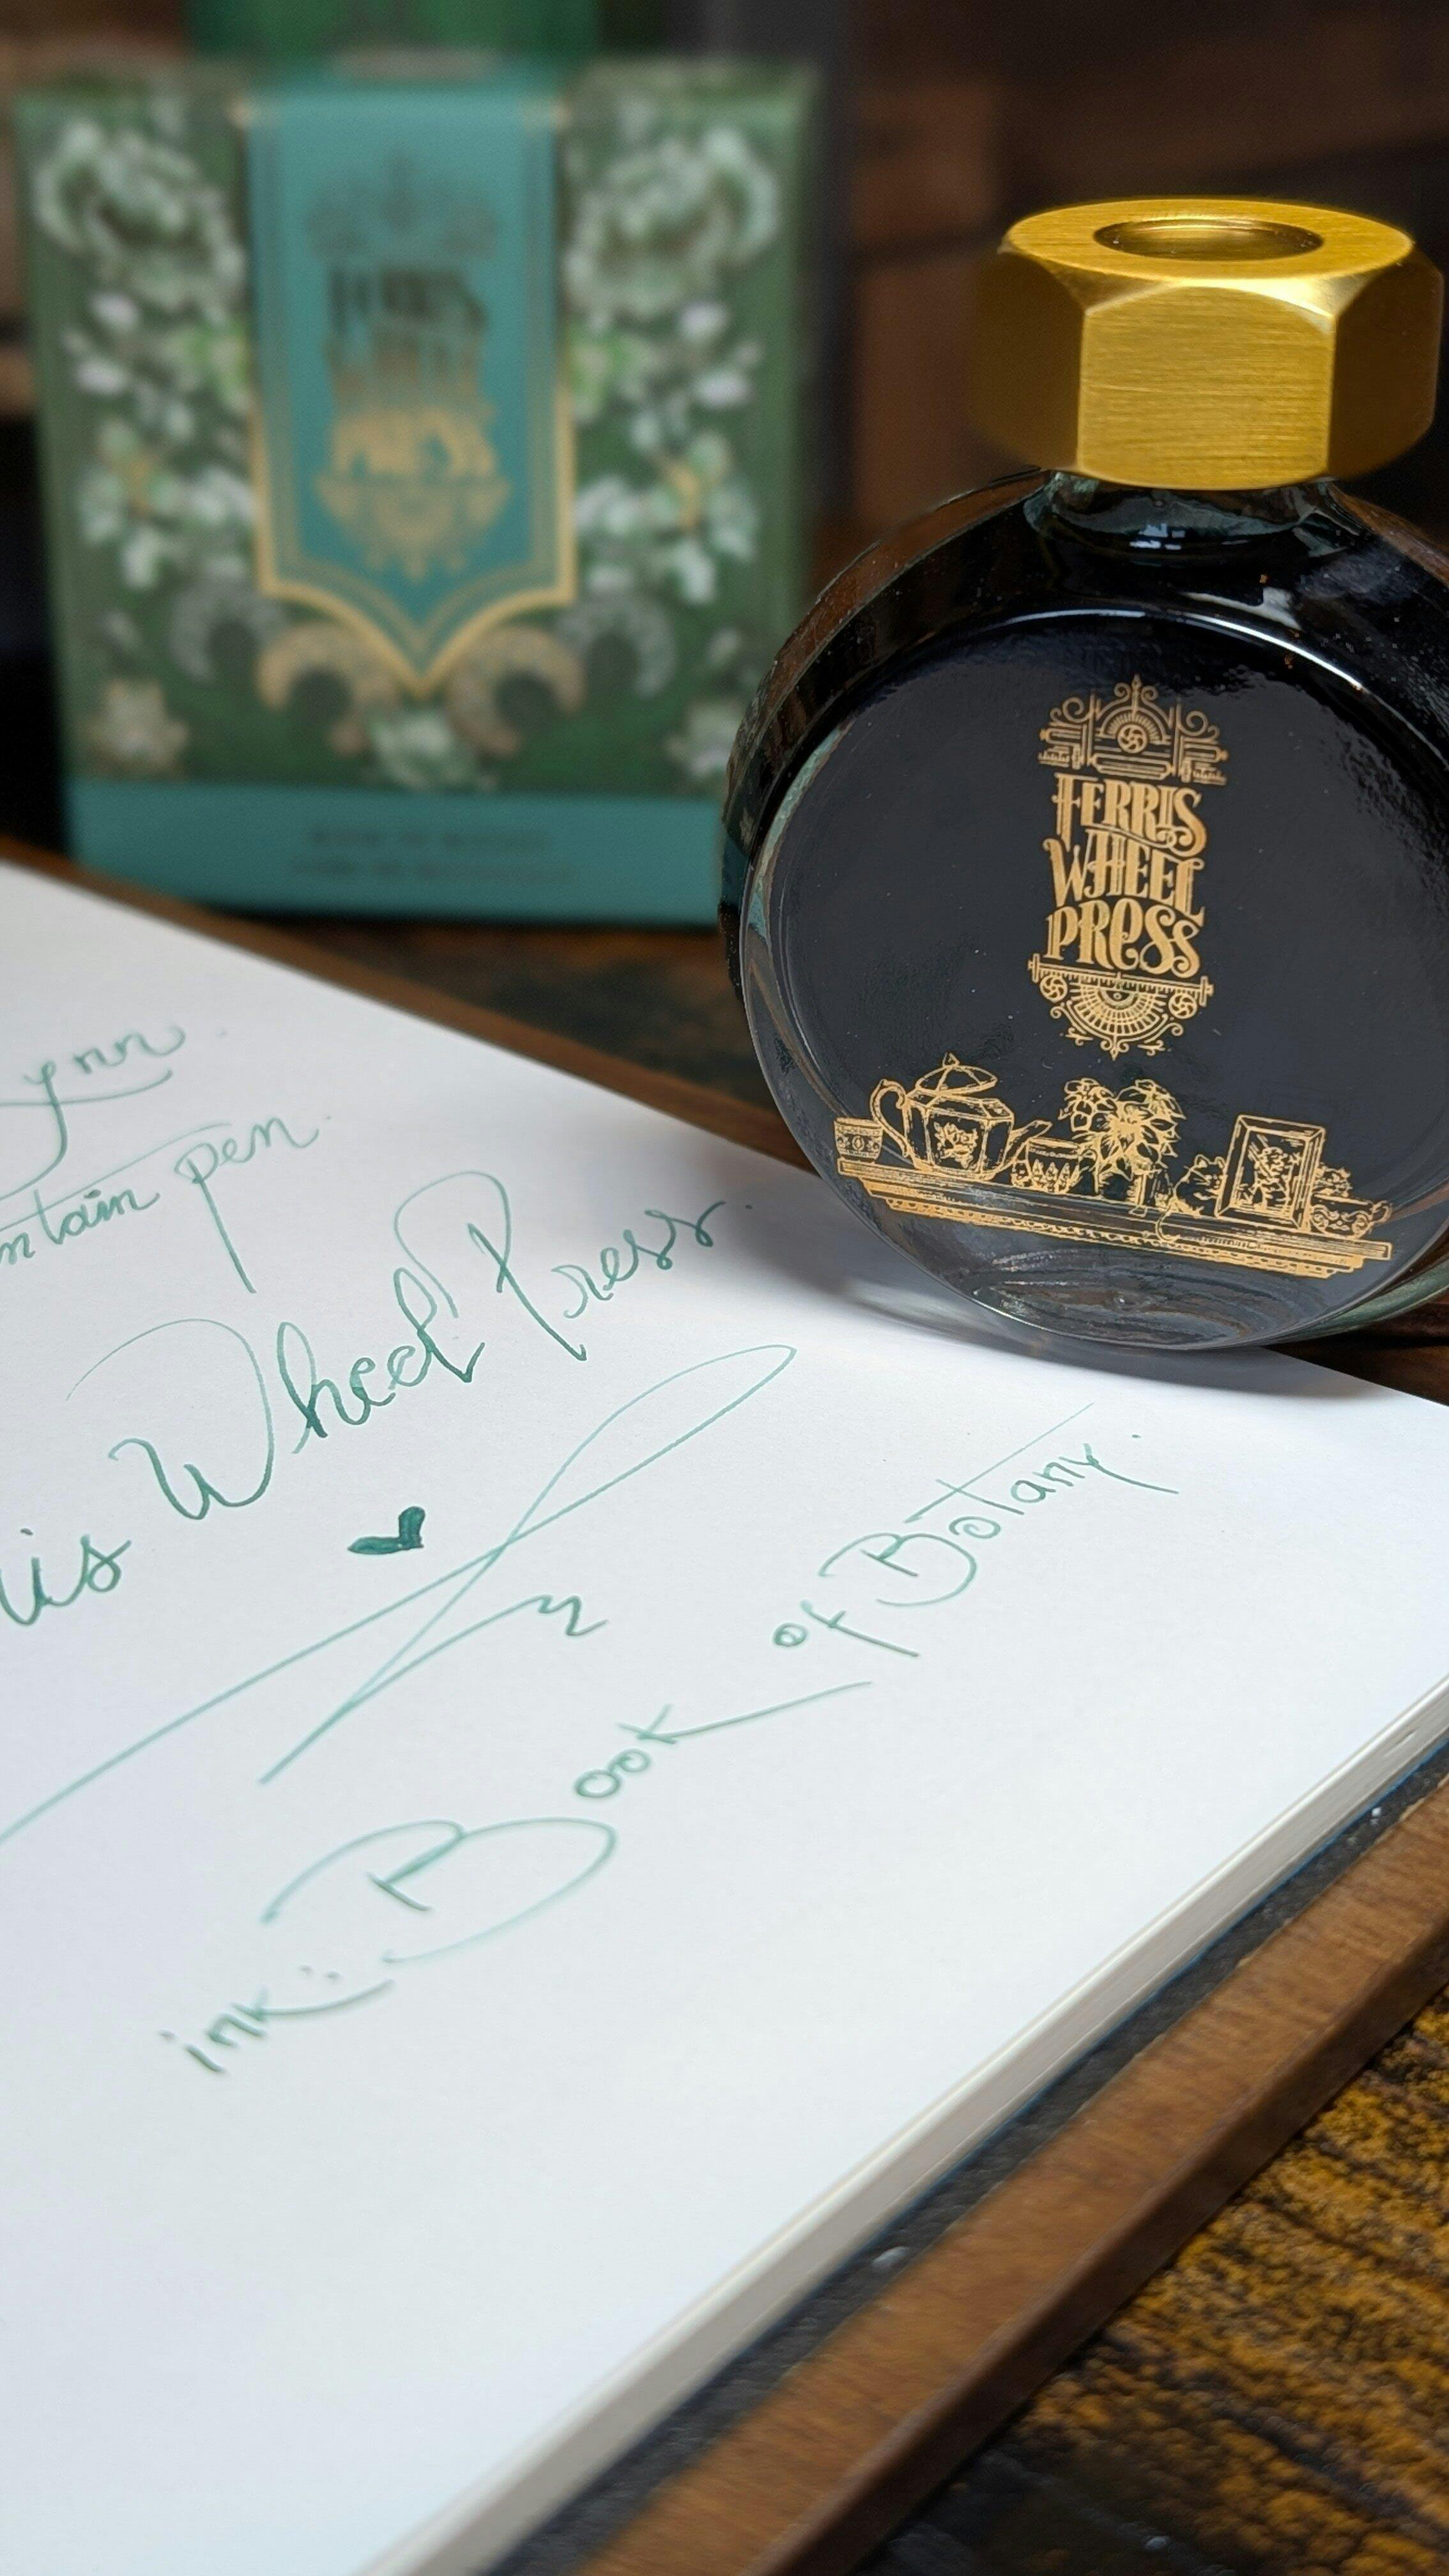 FERRIS
WHEEL
PRESS
PRESS
ynn
ntain pen
is Wheel Press.
ink: Book of Botany.